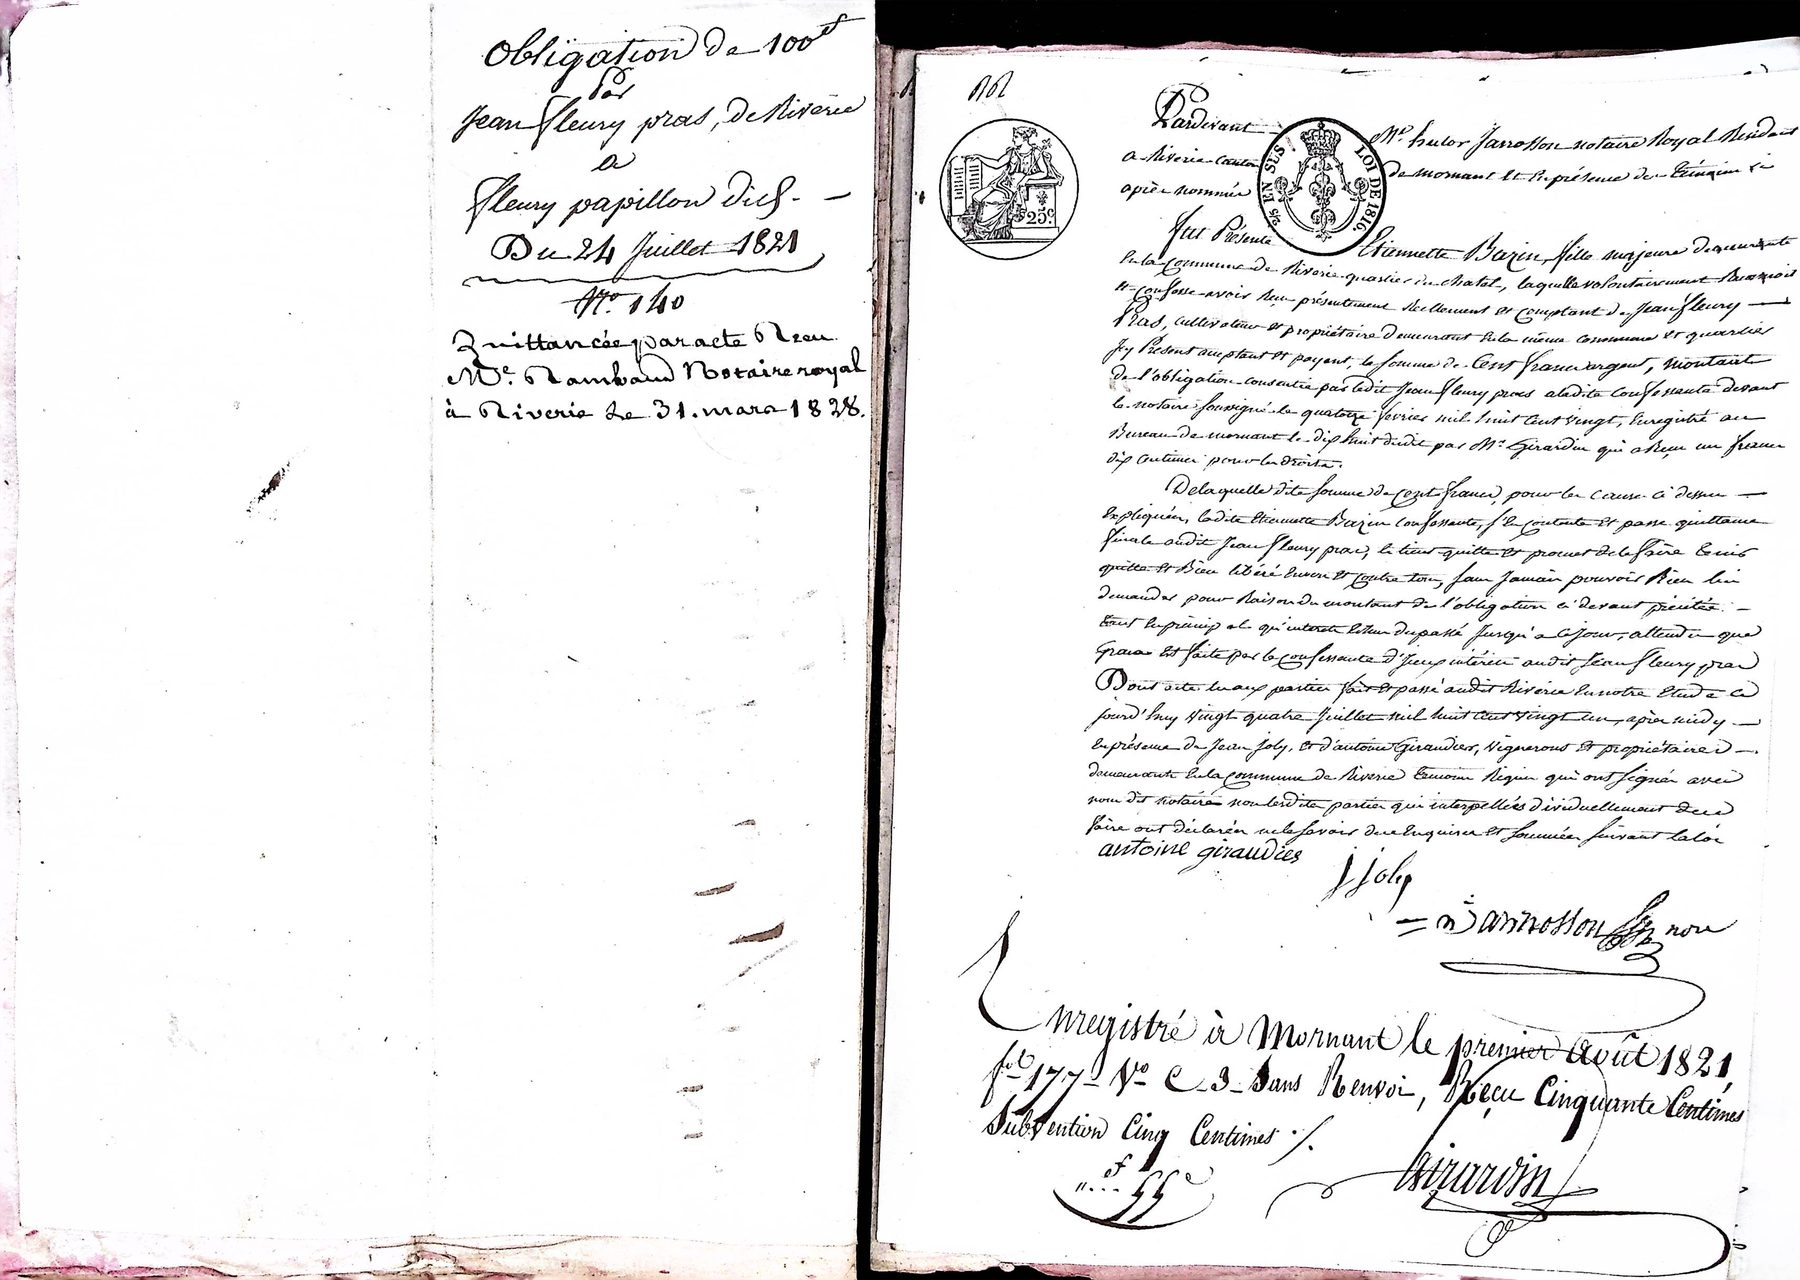 Obligation de 100f
Par
Jean Fleury pras, de Riverie
a
fleury papillon dich. —
Du 24 Juillet 1821
N.o 140
Quittancée par acte Reçu
Me. Rambaud Notaire royal
à Riverie le 31. mars 1828.
Pardevant Me. hector Jarrosson notaire Royal Résidant
a Riverie canton de mornant et en présence des témoins ci
après nommés
25c.
25 EN SUS
LOI DE 1816.
fut Présente Etiennette Bazin, fille majeure demeurante
en la commune de Riverie quartier du chatel, laquelle volontairement Reconnoit
et confesse avoir Reçu présentement Réellement et comptant de Jean fleury —
Pras, cultivateur et propriétaire demeurant en la même commune et quartier
Icy Présent acceptant et payant, la somme de Cent francs argent, montant
de l'obligation consentie par ledit Jean fleury pras a ladite Confessante devant
le notaire soussigné le quatorze fevrier mil huit Cent vingt, Enregistré au
Bureau de mornant le dix huit dudit par Mr. Girardin qui a Reçu un franc
dix centimes pour les droits.
De laquelle dite somme de Cent francs, pour les causes ci dessus —
Expliquées, ladite Etiennette Bazin confessante, s'en contente et passe quittance
finale audit Jean fleury pras, le tient quitte et promet de le faire tenir
quitte et Bien libéré Envers et contre tous, sans Jamais pouvoir Rien lui
demander pour Raison du montant de l'obligation ci devant précitée. —
tant en principal qu'intérêts du passé Jusqu'a ce jour, attendu que
Grace est faite par la confessante d'Iceux intérêts audit Jean fleury pras
Dont acte aux parties fait et passé audit Riverie en notre Etude ce
jourd'huy vingt quatre Juillet mil huit cent vingt un, après midy —
en présence de Jean Joly, et d'antoine Giraudier, vignerons et propriétaires —
demeurants en la commune de Riverie temoins Réquis qui ont signés avec
nous dit notaire non lesdites parties qui interpellées dividuellement de ce
faire ont déclarées ne le savoir de ce Enquises et sommées suivant la loi
antoine giraudier
J Joly
= Jarrosson nore
Enregistré à Mornant le premier Août 1821,
fo. 177 Vo C 3 Sans Renvoi, Reçu Cinquante Centimes
Subvention Cinq Centimes ./.
"...f 55c
Girardin